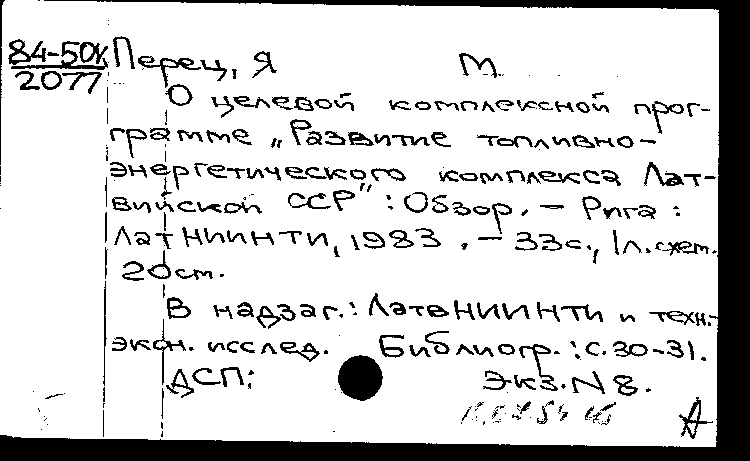 84-50к
2077
Перец, Я М
О целевой комплексной прог-
грамме „Развитие топливно-
энергетического комплекса Лат-
вийской ССР": Обзор. – Рига:
ЛатНИИНТИ, 1983. – 33с., 1л.схем.
20см.
В надзаг.: ЛатвНИИНТИ и техн.-
экон. исслед. Библиогр.: с.30-31.
ДСП: Экз.N8.
А